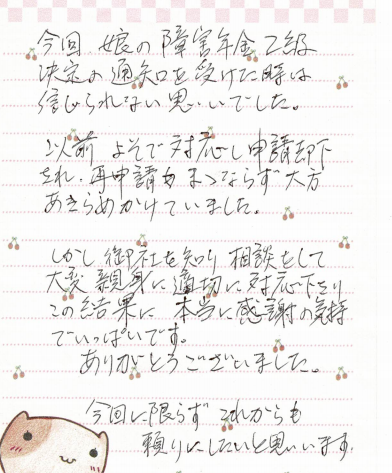 今回 娘の 障害年金 2級
決定の 通知を 受けた時は
信じられない 思いでした。
以前 よそで 対応し 申請却下
され、再申請も まゝならず 大方
あきらめかけていました。
しかし 御社を知り 相談をして
大変 親身に 適切に 対応下さり
この結果に 本当に 感謝の気持
でいっぱいです。
ありがとうございました。
今回に限らず これからも
頼りにしたいと思います。